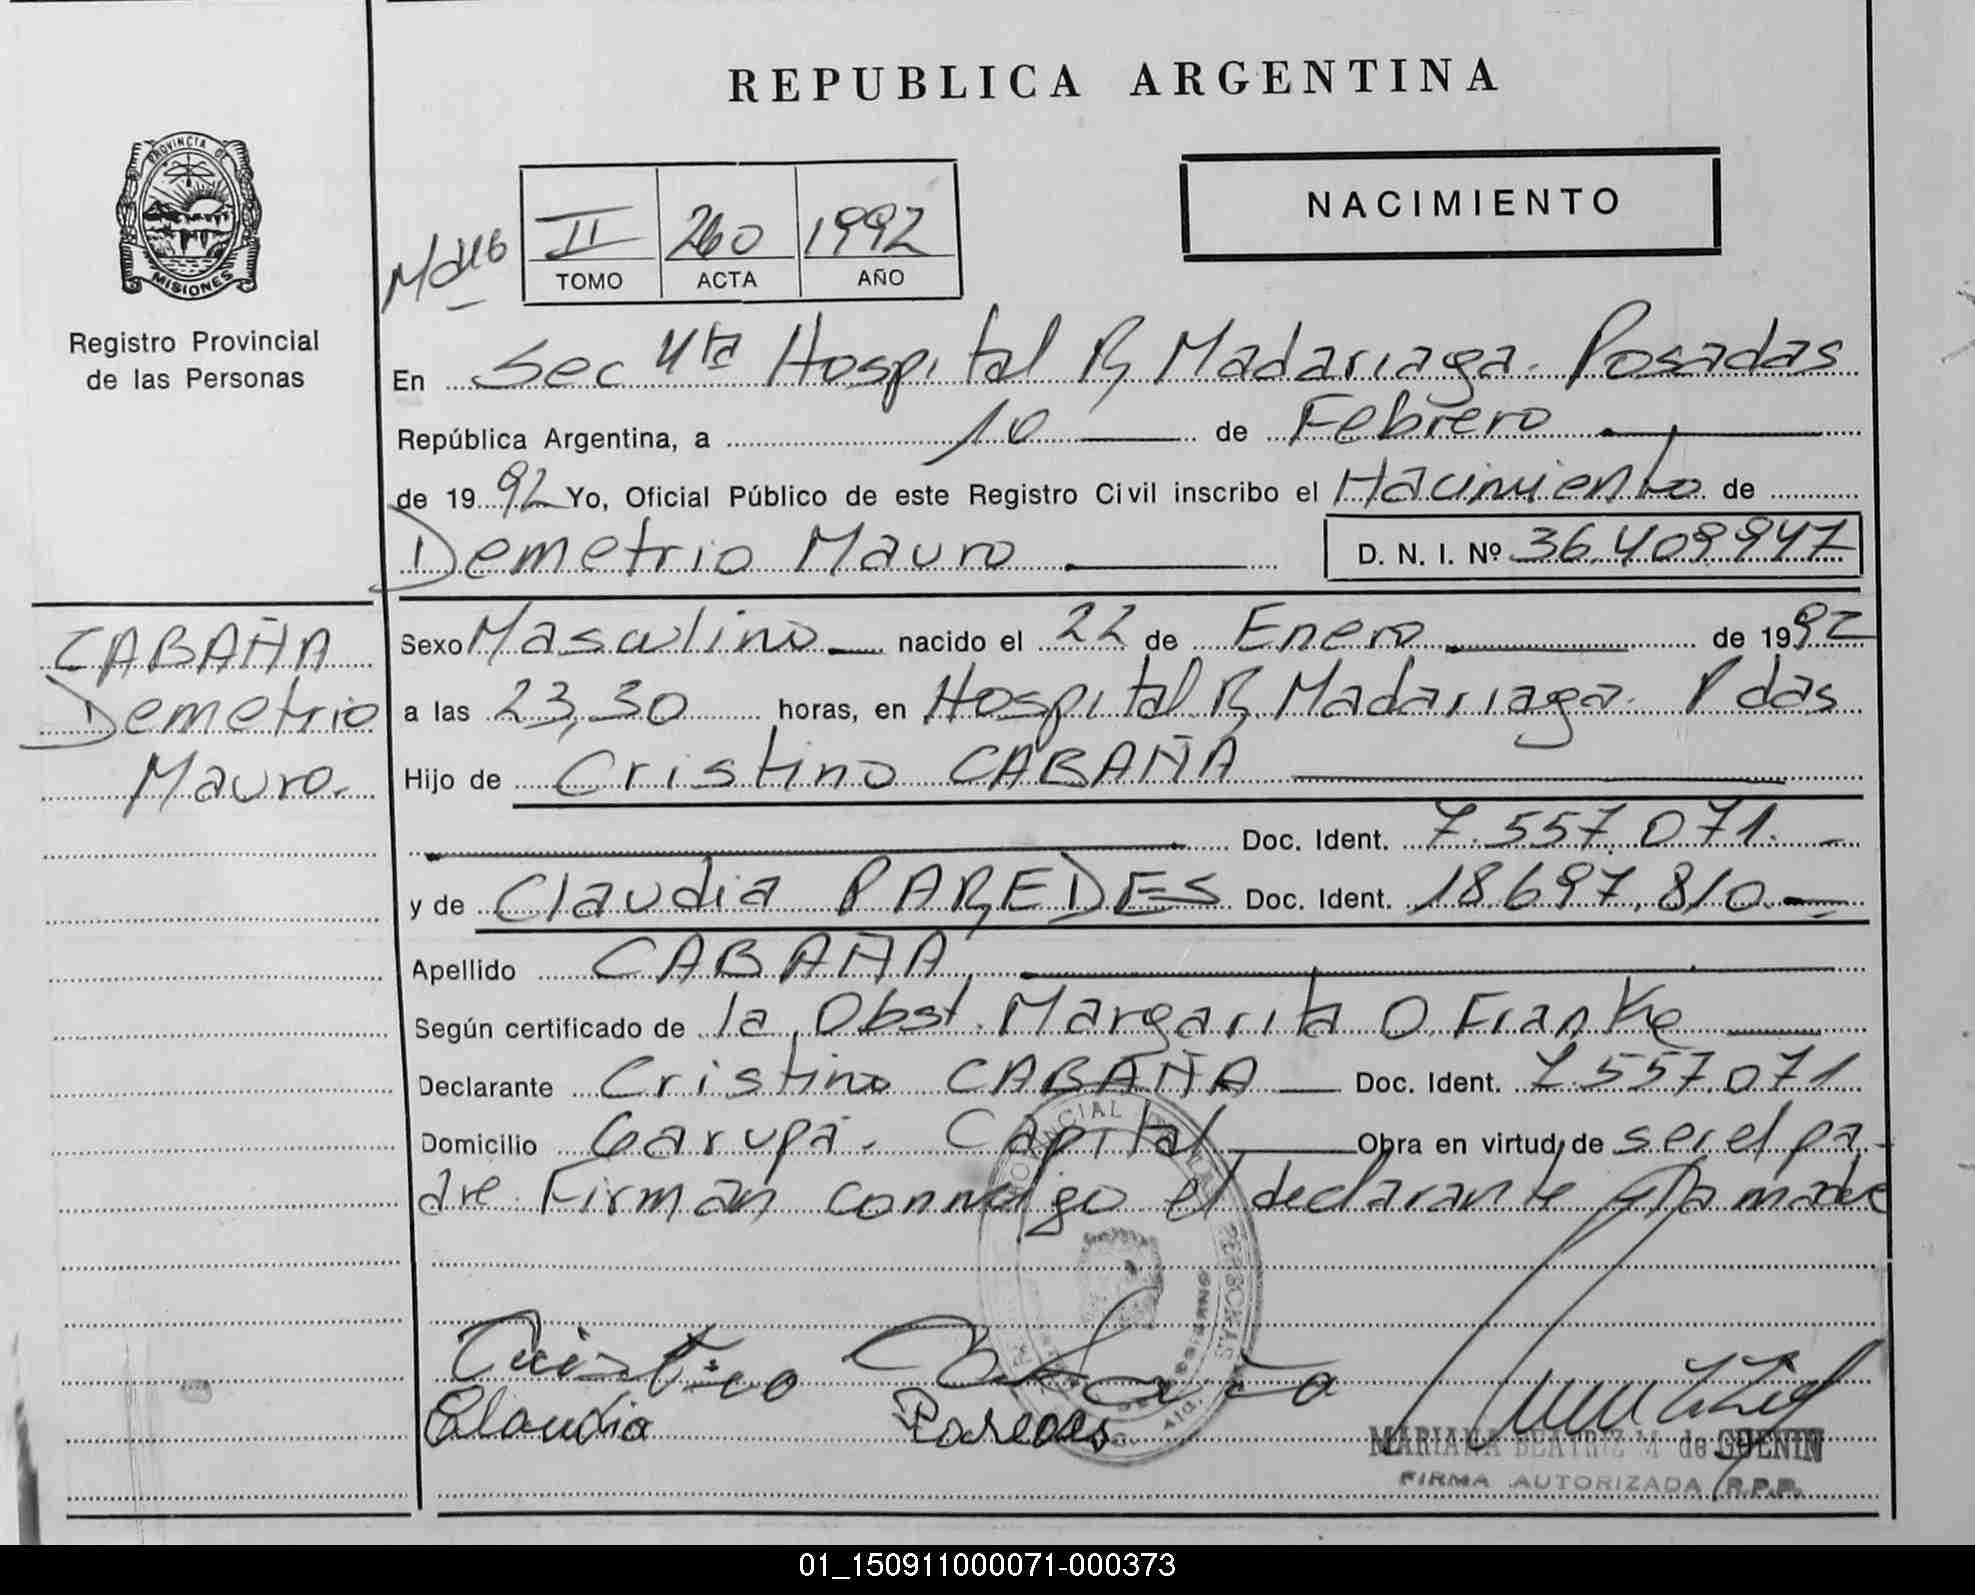 REPUBLICA ARGENTINA
PROVINCIA DE
MISIONES
Registro Provincial
de las Personas
NACIMIENTO
II 260 1992
TOMO ACTA AÑO
En Sec 4ta Hospital R, Madariaga. Posadas
República Argentina, a 10 de Febrero
de 1992 Yo, Oficial Público de este Registro Civil inscribo el Nacimiento de
Demetrio Mauro D. N. I. Nº 36.409947
CABAÑA
Demetrio
Mauro.
Sexo Masculino nacido el 22 de Enero de 1992
a las 23,30 horas, en Hospital R, Madariaga. Pdas
Hijo de Cristino CABAÑA
Doc. Ident. 7.557.071.
y de Claudia PAREDES Doc. Ident. 18.697.810.
Apellido CABAÑA
Según certificado de la Obst. Margarita O. Franke
Declarante Cristino CABAÑA Doc. Ident. 7.557.071
Domicilio Garupá. Capital Obra en virtud de ser el pa-
dre. Firman conmigo el declarante y la madre
Cristino
Claudia Paredes
MARIANA BEATRIZ M de GUENIN
FIRMA AUTORIZADA R.P.P.
01_150911000071-000373